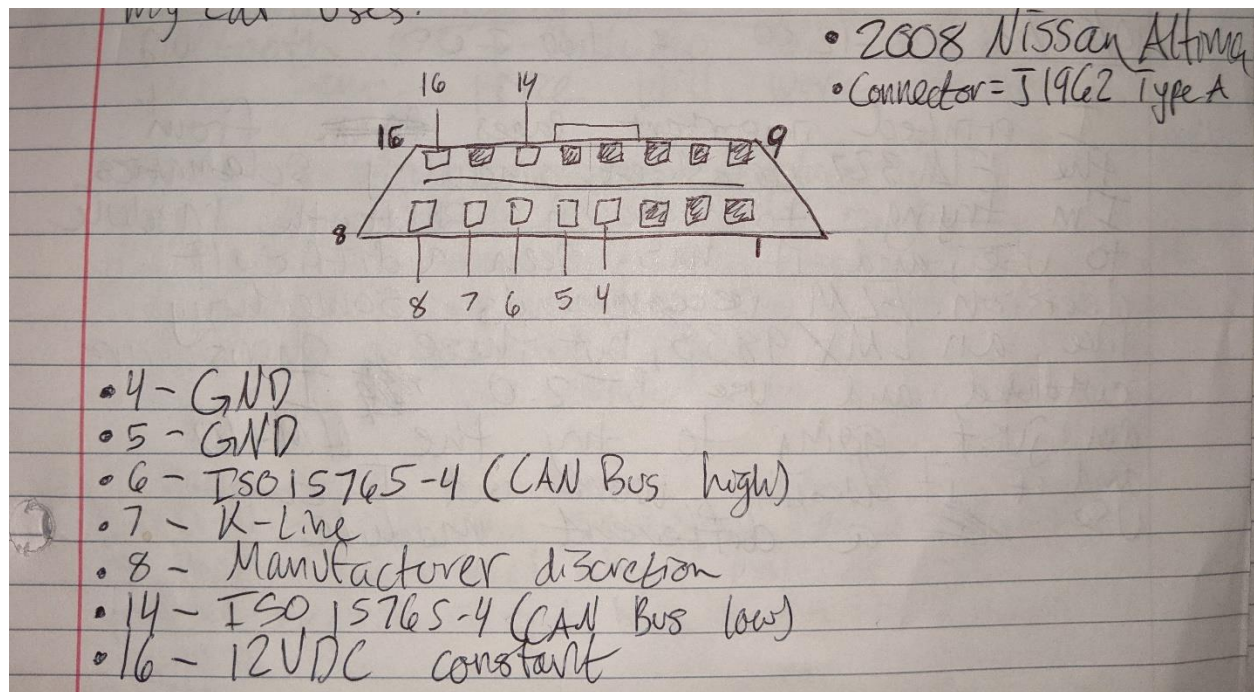 my car uses.
• 2008 Nissan Altima
• Connector = J1962 Type A
16 14
16 9
8 1
8 7 6 5 4
• 4 - GND
• 5 - GND
• 6 - ISO15765-4 (CAN Bus high)
• 7 - K-Line
• 8 - Manufacturer discretion
• 14 - ISO 15765-4 (CAN Bus low)
• 16 - 12VDC constant